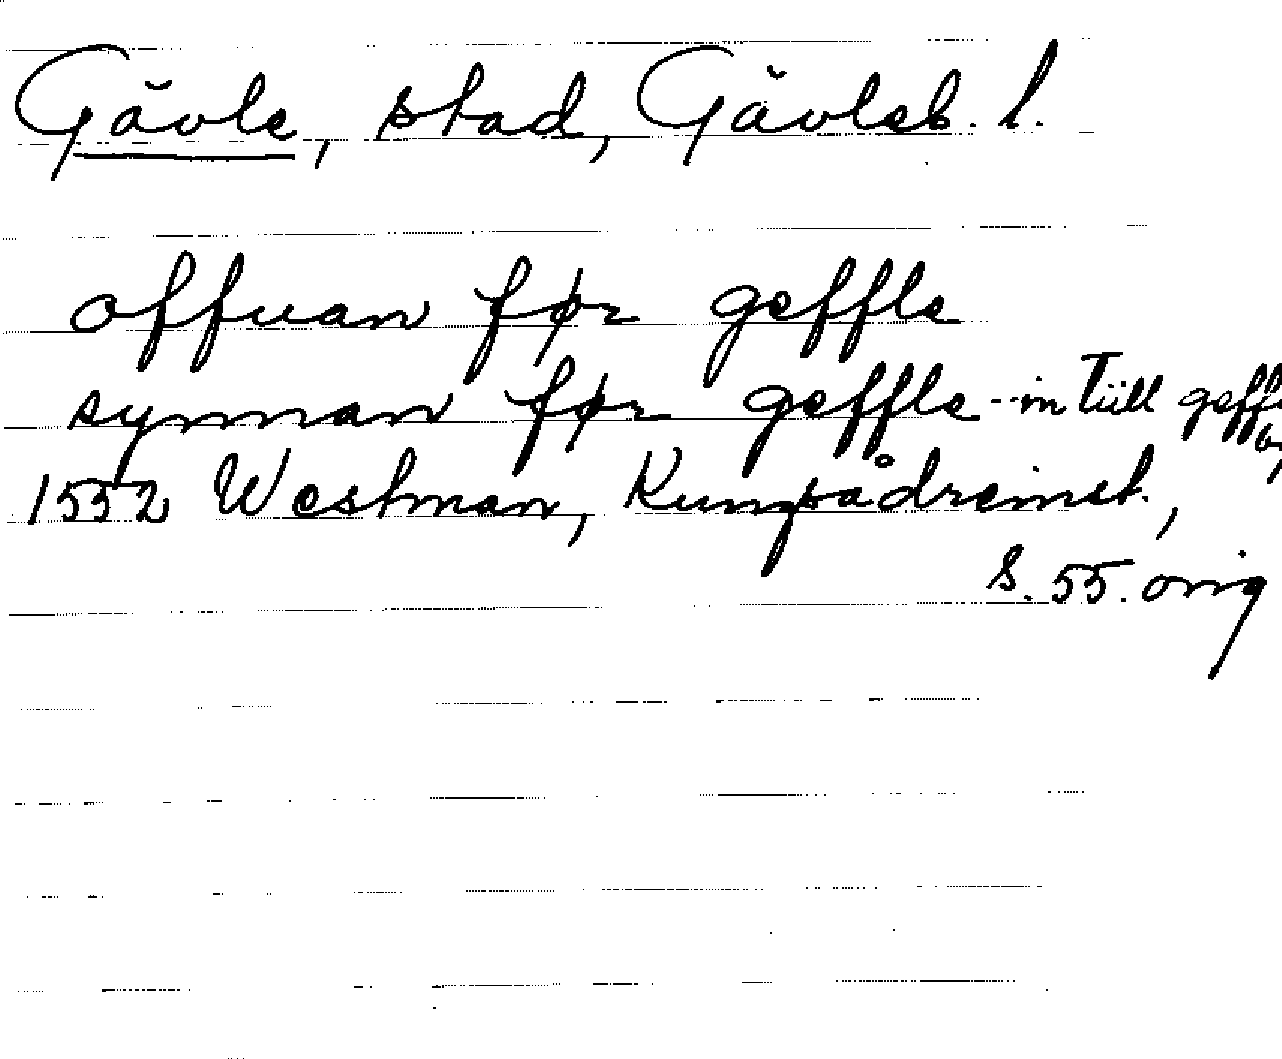 Gävle, stad, Gävleb. l.
offuan før geffle
synnan før geffle -- in tüll geffle
1552 Westman, Kungsådreinst.,
s. 55. orig